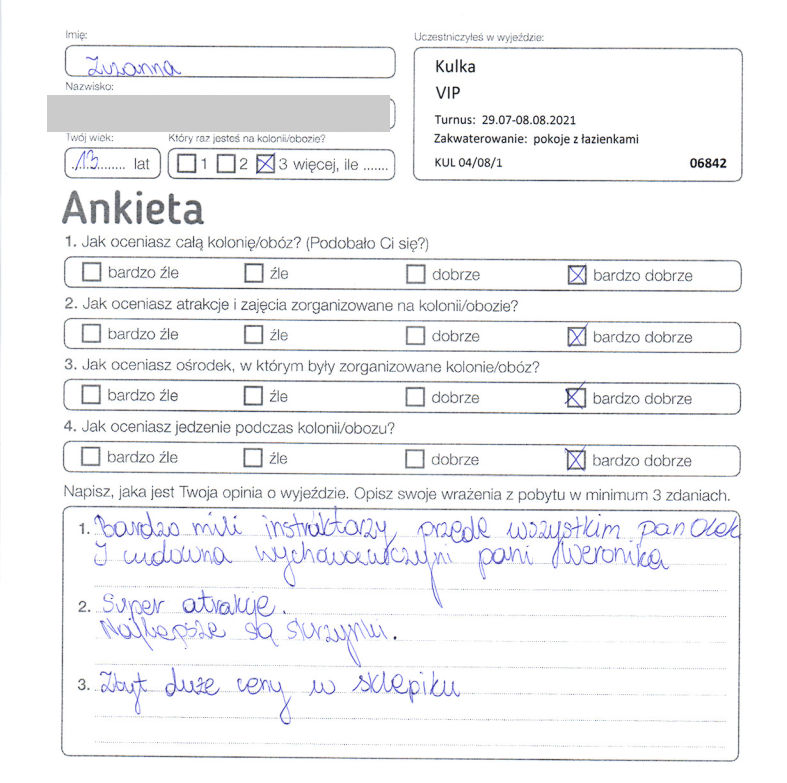 Imię:
Zuzanna
Nazwisko:
Twój wiek:
13 lat
Który raz jesteś na kolonii/obozie?
1 2 3 więcej, ile .......
Uczestniczyłeś w wyjeździe:
Kulka
VIP
Turnus: 29.07-08.08.2021
Zakwaterowanie: pokoje z łazienkami
KUL 04/08/1 06842
Ankieta
1. Jak oceniasz całą kolonię/obóz? (Podobało Ci się?)
bardzo źle źle dobrze bardzo dobrze
2. Jak oceniasz atrakcje i zajęcia zorganizowane na kolonii/obozie?
bardzo źle źle dobrze bardzo dobrze
3. Jak oceniasz ośrodek, w którym były zorganizowane kolonie/obóz?
bardzo źle źle dobrze bardzo dobrze
4. Jak oceniasz jedzenie podczas kolonii/obozu?
bardzo źle źle dobrze bardzo dobrze
Napisz, jaka jest Twoja opinia o wyjeździe. Opisz swoje wrażenia z pobytu w minimum 3 zdaniach.
1. Bardzo mili instruktarzy przede wszystkim pan Olek
I cudowna wychowawczyni pani Weronika
2. Super atrakcje.
Najlepsze są skrzynki.
3. Zbyt duże ceny w sklepiku